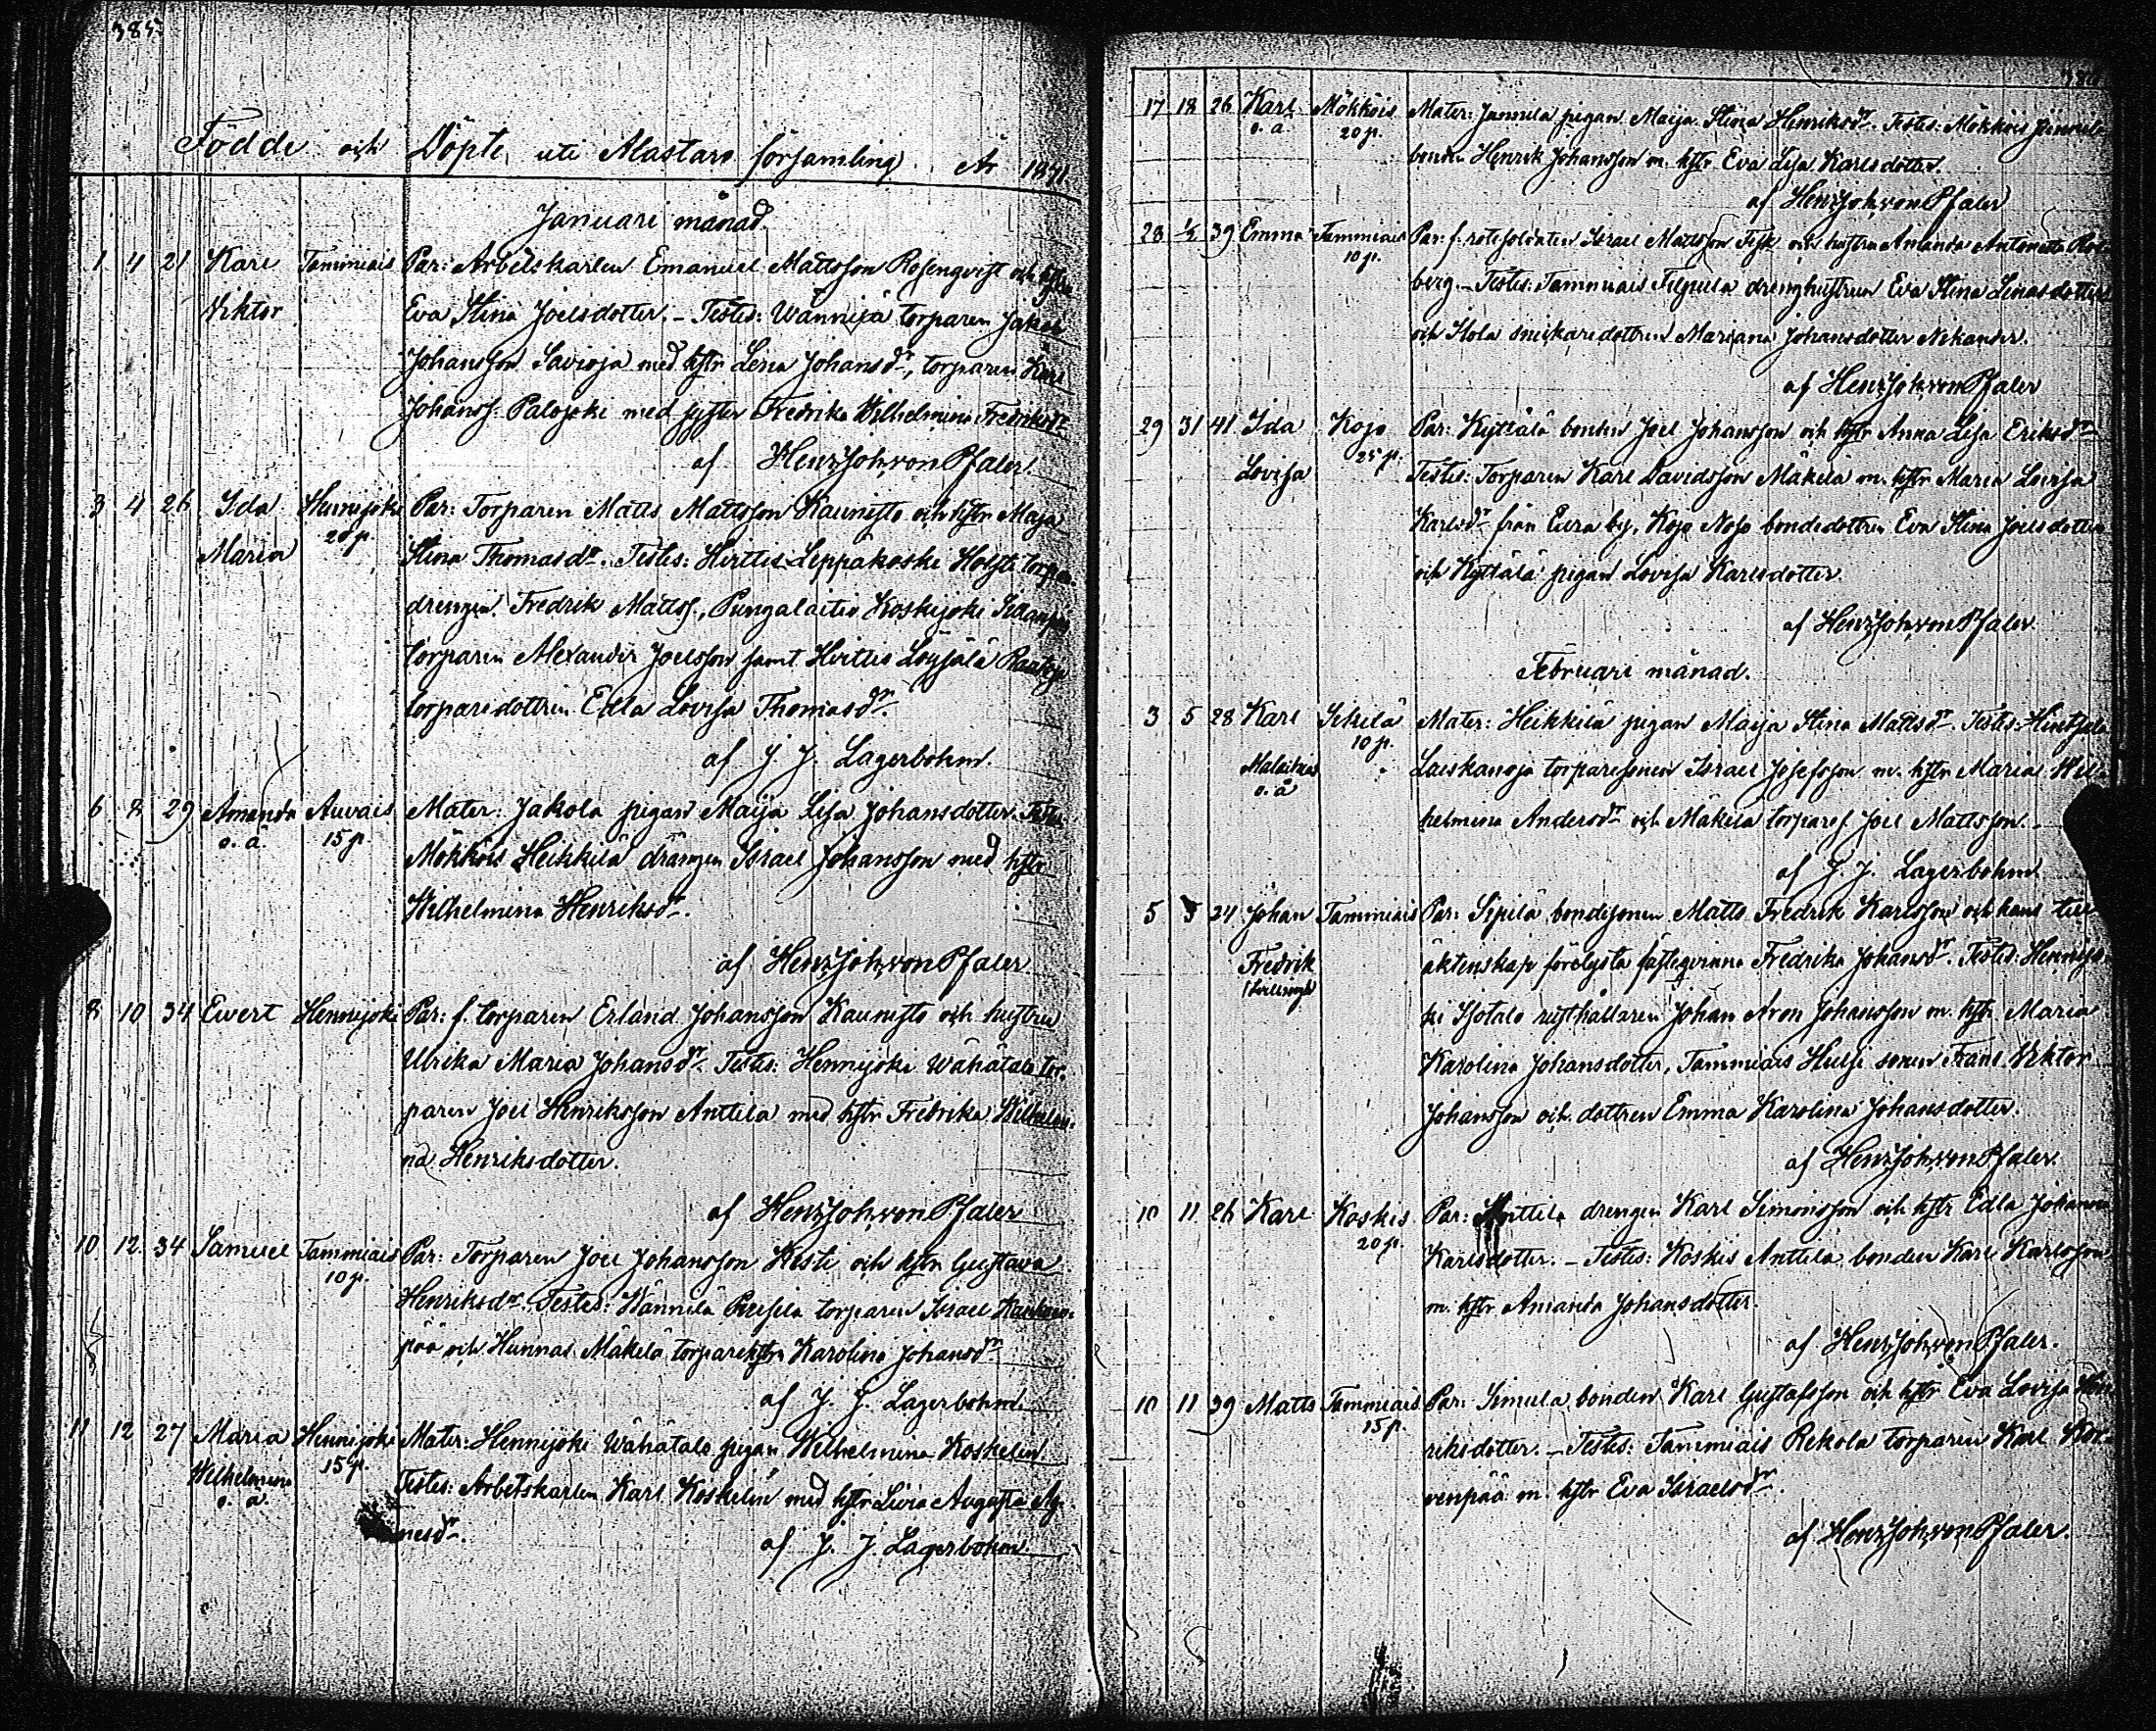 385
Födde och Döpte uti Mastars församling År 1871
Januari månad.
1 4 21 Karl Tammiais Par: Arbetskarlen Emanuel Mattsson Rosenqvist och hstr
Viktor Eva Stina Joelsdotter. – Testes: Wännilä torparen Jakob
Johansson Savioja med hstr Lena Johansdr, torparen Karl
Johanss. Palojoki med syster Fredrika Wilhelmina Fredriksdr
af Henr Joh von Pfaler.
3 4 26 Ida Hennijoki Par: Torparen Matts Mattsson Kaunisto och hstr Maja
20 p.
Maria Stina Thomasdr. Testes: Hirttis Leppäkoski Holsti
drengen Fredrik Matts., Pungalaitio Koskijoki
torparen Alexander Joelsson samt Hirttis Löysälä
torparedottren Edla Lovisa Thomasdr.
af J. J. Lagerbohm.
6 8 29 Amanda Auvais Mater: Jakola pigan Maija Lisa Johansdotter. Testes
o. ä. 15 p. Mökköis Heikkilä drängen Israel Johansson med hstr
Wilhelmina Henriksdr.
af Henr Joh von Pfaler
8 10 34 Evert Hennijoki Par: f. torparen Erland Johansson Kaunisto och hustru
Ulrika Maria Johansdr. Testes: Hennijoki Wähätalo tor-
paren Joel Henriksson Anttila med hstr Fredrika Wilhelmi-
na Henriksdotter.
af Henr Joh von Pfaler
10 12 34 Samuel Tammiais Par: Torparen Joel Johansson Kesti och hstr Gustava
10 p.
Henriksdr. Testes: Wännilä torparen Israel
pää och Hunnas Mäkelä torparehstr Karolina Johansdr
af J. J. Lagerbohm.
11 12 27 Maria Hennijoki Mater: Hennijoki Wähätalo pigan Wilhelmina Koskelin
Wilhelmina 15 p.
o. ä. Testes: Arbetskarlen Karl Koskelin med hstr Livia Augusta Ag-
nesdr.
af J. J. Lagerbohm.
17 18 26 Karl Mökköis Mater: Junnila pigan Maija Stina Henriksdr. Testes: Mökköis
o. ä. 20 p.
bonden Henrik Johansson m. hstr Eva Lisa Karlsdotter.
af Henr Joh von Pfaler
28 ½ 39 Emma Tammiais Par: f. rotesoldaten Israel Mattsson Fisk och hustru Amanda Antonetta Ros-
10 p.
berg. – Testes: Tammiais Filpula drenghustrun Eva Stina Linasdotter
och Stola snickaredottren Mariana Johansdotter Nikander.
af Henr Joh von Pfaler
29 31 41 Ida Kojo Par: Kyttälä bonden Joel Johansson och hstr Anna Lisa Eriksdr
25 p.
Lovisa Testes: Torparen Karl Davidsson Mäkelä m. hstr Maria Lovisa
Karlsdr från Eura by, Kojo bondedottren Eva Stina Joelsdotter
och Kyttälä pigan Lovisa Karlsdotter.
af Henr Joh von Pfaler.
Februari månad.
3 5 28 Karl Sikilä Mater: Heikkilä pigan Maija Stina Mattsdr. Testes:
10 p.
Malakias Laiskanoja torparesonen Israel Josefsson m. hstr Maria Wil-
o. ä
helmina Andersdr och Mäkilä torpares. Joel Mattsson.
af J. J. Lagerbohm
5 5 24 Johan Tammiais Par: Sipilä bondesonen Matts Fredrik Karlsson och hans till
Fredrik äktenskap förelysta fästeqvinna Fredrika Johansdr. Testes: Hennijo-
ki Isotalo rusthållaren Johan Aron Johansson m. hstr Maria
Karolina Johansdotter, Tammiais sonen Frans Viktor
Johansson och dottren Emma Karolina Johansdotter.
af Henr Joh von Pfaler.
10 11 26 Karl Koskis Par: drengen Karl Simonsson och hstr Edla Johanna
20 p.
Karlsdotter. – Testes: Koskis Anttila bonden Karl Karlsson
m. hstr Amanda Johansdotter.
af Henr Joh von Pfaler.
10 11 39 Matts Tammiais Par: Simula bonden Karl Gustafsson och hstr Eva Lovisa Hen-
15 p.
riksdotter. – Testes: Tammiais Rekola torparen Karl Kor-
venpää m. hstr Eva Israelsdr.
af Henr Joh von Pfaler.